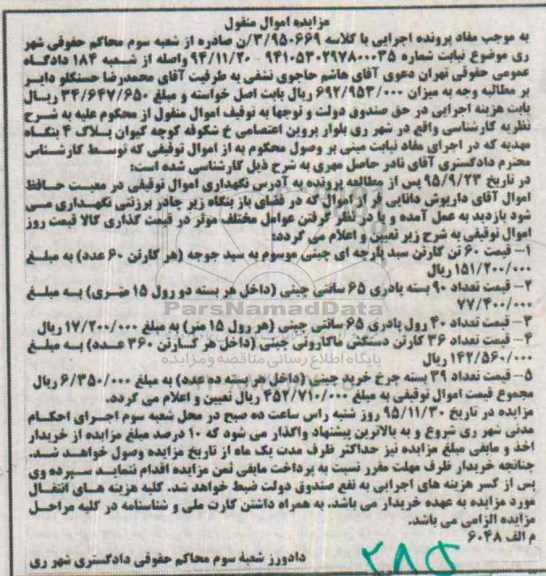 مزایده اموال منقول
به موجب مفاد پرونده اجرایی با کلاسه ۳/۹۵۰۶۶۹/ن صادره از شعبه سوم محاکم حقوقی شهر
ری موضوع نیابت شماره ۹۴۱۰۵۳۰۲۹۷۸۰۰۰۳۵ – ۹۴/۱۱/۲۰ واصله از شعبه ۱۸۴ دادگاه
عمومی حقوقی تهران دعوی آقای هاشم حاجوی نشفی به طرفیت آقای محمدرضا حسنکلو دایر
بر مطالبه وجه به میزان ۶۹۲/۹۵۳/۰۰۰ ریال بابت اصل خواسته و مبلغ ۳۴/۶۴۷/۶۵۰ ریال
بابت هزینه اجرایی در حق صندوق دولت و توجها به توقیف اموال منقول از محکوم علیه به شرح
نظریه کارشناسی واقع در شهر ری بلوار پروین اعتصامی خ شکوفه کوچه کیوان پلاک ۴ بنگاه
مهدیه که در اجرای مفاد نیابت مبنی بر وصول محکوم به از اموال توقیفی که توسط کارشناس
محترم دادگستری آقای نادر حاصل مهری به شرح ذیل کارشناسی شده است:
در تاریخ ۹۵/۹/۲۳ پس از مطالعه پرونده به آدرس نگهداری اموال توقیفی در معیت حافظ
اموال آقای داریوش دانایی فر از اموال که در فضای باز بنگاه زیر چادر برزنتی نگهداری می
شود بازدید به عمل آمده و با در نظر گرفتن عوامل مختلف موثر در قیمت گذاری کالا قیمت روز
اموال توقیفی به شرح زیر تعیین و اعلام می گردد:
۱– قیمت ۶۰ تن کارتن سبد پارچه ای چینی موسوم به سبد جوجه (هر کارتن ۶۰ عدد) به مبلغ
۱۵۱/۲۰۰/۰۰۰ ریال
۲– قیمت تعداد ۹۰ بسته پادری ۶۵ سانتی چینی (داخل هر بسته دو رول ۱۵ متری) به مبلغ
۷۷/۴۰۰/۰۰۰
ParsNamadData
۳– قیمت تعداد ۴۰ رول پادری ۶۵ سانتی چینی (هر رول ۱۵ متر) به مبلغ ۱۷/۲۰۰/۰۰۰ ریال
۴– قیمت تعداد ۳۶ کارتن دستکش ماکارونی چینی (داخل هر کارتن ۳۶۰ عدد) به مبلغ
۱۴۲/۵۶۰/۰۰۰ ریال
پایگاه اطلاع رسانی مناقصه و مزایده
۵– قیمت تعداد ۳۹ بسته چرخ خرید چینی (داخل هر بسته ده عدد) به مبلغ ۶/۳۵۰/۰۰۰ ریال
مجموع قیمت اموال توقیفی به مبلغ ۴۵۲/۷۱۰/۰۰۰ ریال تعیین و اعلام می گردد.
مزایده در تاریخ ۹۵/۱۱/۳۰ روز شنبه راس ساعت ده صبح در محل شعبه سوم اجرای احکام
مدنی شهر ری شروع و به بالاترین پیشنهاد واگذار می شود که ۱۰ درصد مبلغ مزایده از خریدار
اخذ و مابقی مبلغ مزایده نیز حداکثر ظرف مدت یک ماه از تاریخ مزایده وصول خواهد شد.
چنانچه خریدار ظرف مهلت مقرر نسبت به پرداخت مابقی ثمن مزایده اقدام ننماید سپرده وی
پس از کسر هزینه های اجرایی به نفع صندوق دولت ضبط خواهد شد. کلیه هزینه های انتقال
مورد مزایده به عهده خریدار می باشد. به همراه داشتن کارت ملی و شناسنامه در کلیه مراحل
مزایده الزامی می باشد.
م الف ۶۰۴۸
۲۸۵
دادورز شعبه سوم محاکم حقوقی دادگستری شهر ری